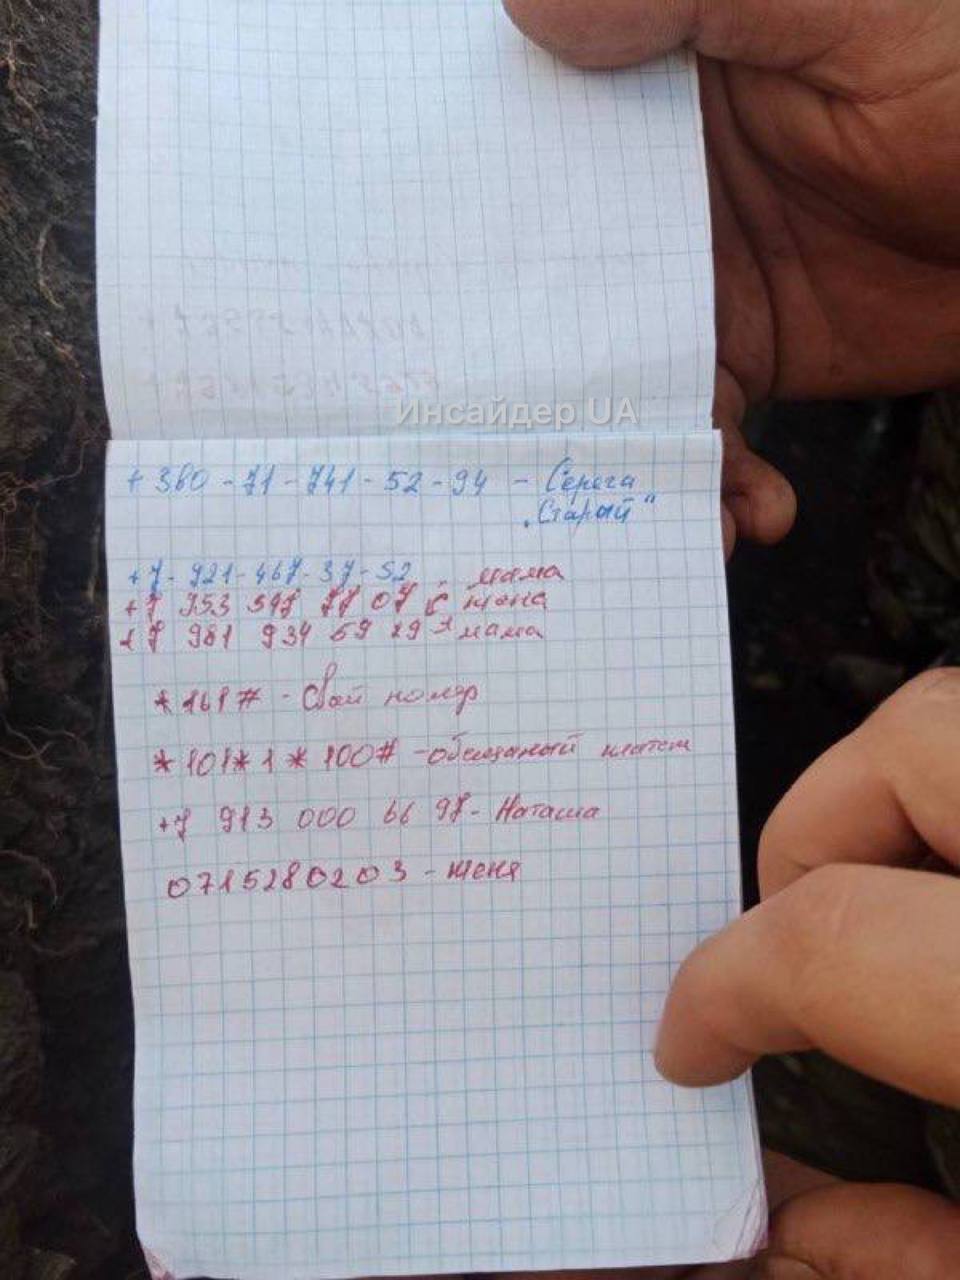 Инсайдер UA
+380-71-741-52-94 - Серега
"Старый"
+7-921-467-37-52 - мама
+7 953 597 77 07 - жена
+7 981 934 59 29 - мама
*161# - Свой номер
*101*1*100# - обещаный платеж
+7 913 000 66 97 - Наташа
0715280203 - женя